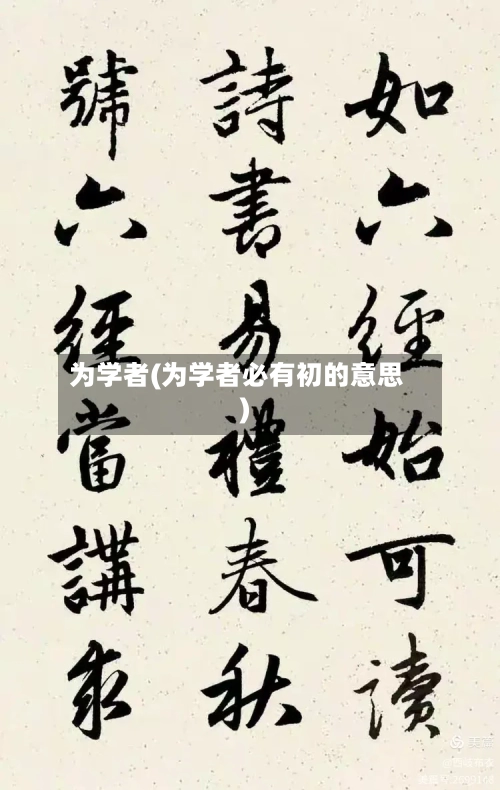 如六經始可讀
詩書易禮春秋
號六經當講求
为学者(为学者必有初的意思
)